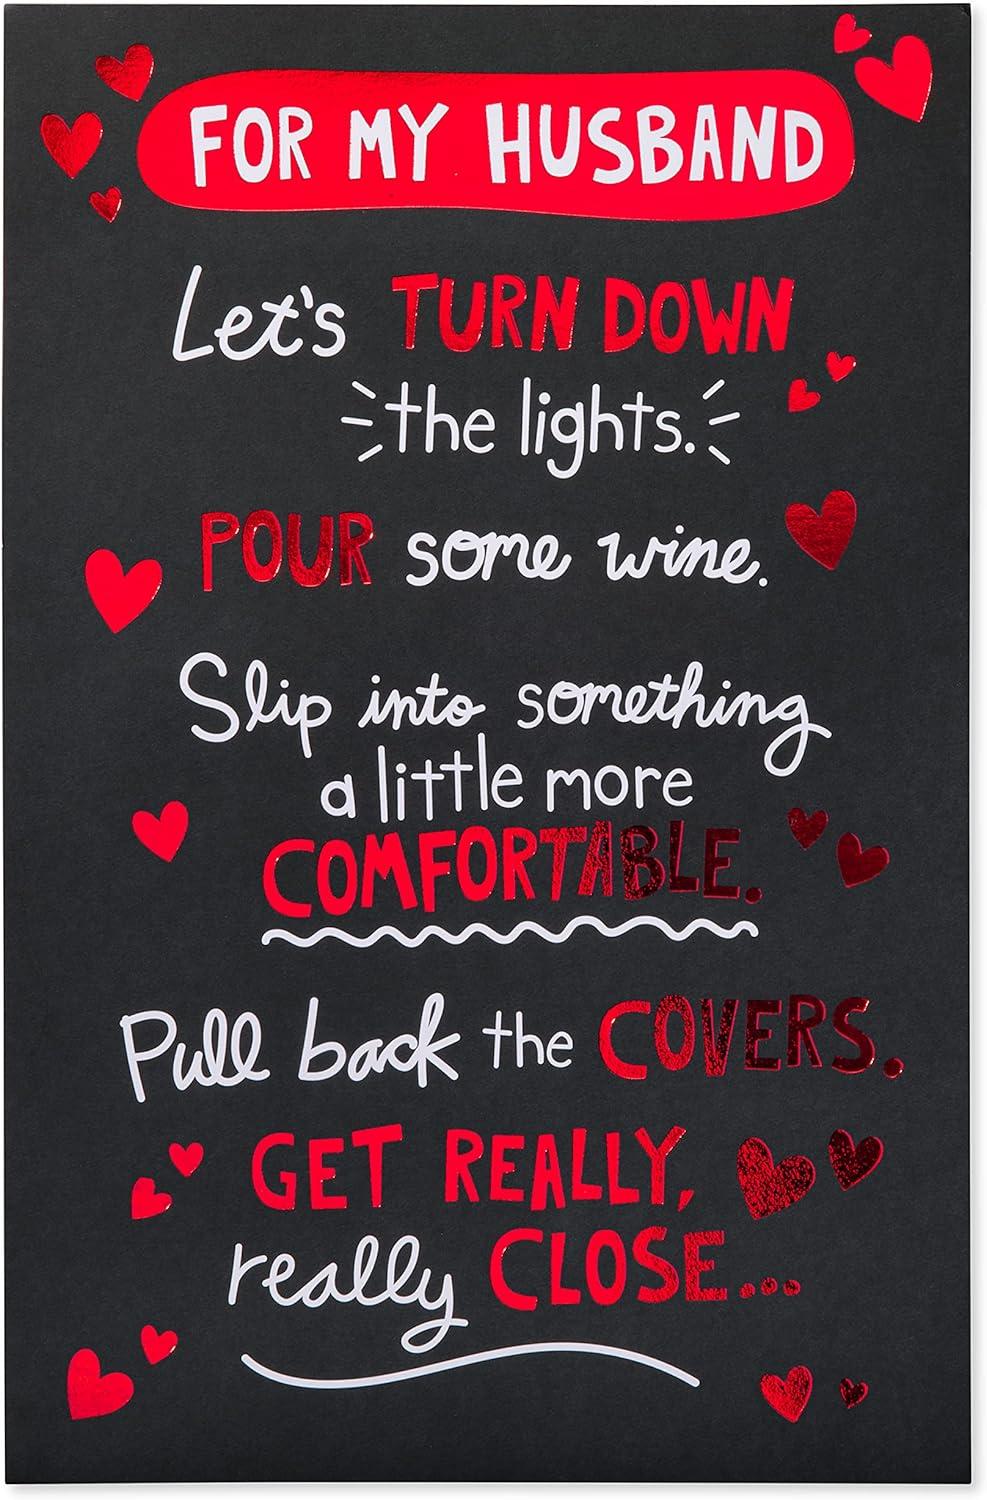 FOR MY HUSBAND
Let's TURN DOWN
the lights.
POUR some wine.
Slip into something
a little more
COMFORTABLE.
Pull back the COVERS.
GET REALLY,
really CLOSE...